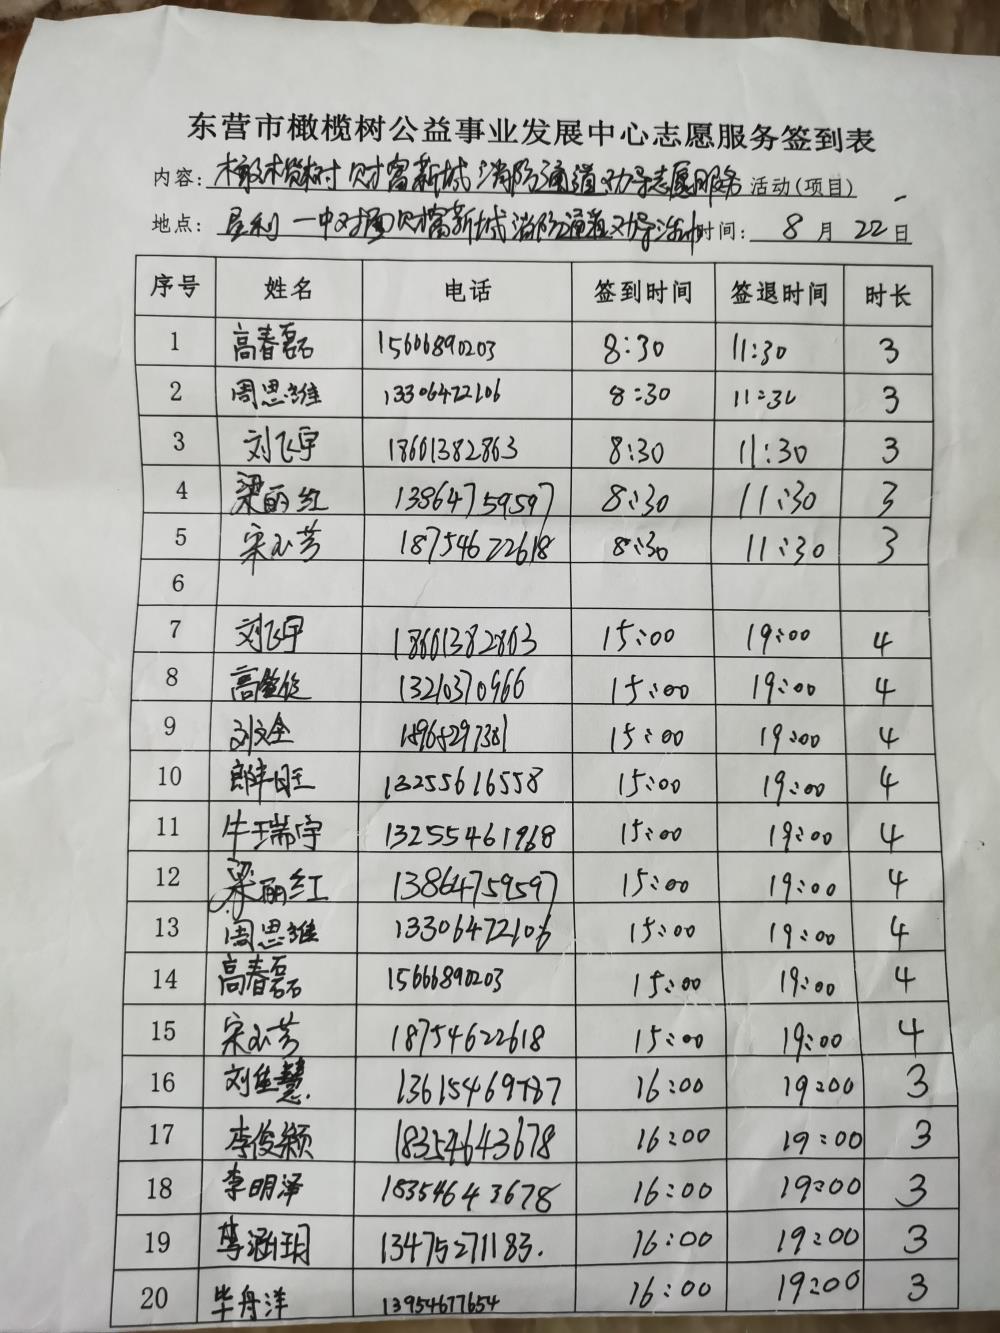 东营市橄榄树公益事业发展中心志愿服务签到表
内容：橄榄树财富新城消防通道劝导志愿服务 活动(项目)
地点：垦利一中对面财富新城消防通道劝导活动 时间：8月22日
序号 姓名 电话 签到时间 签退时间 时长
1 高春磊 15606890203 8:30 11:30 3
2 周思维 13306472106 8:30 11:30 3
3 刘飞宇 18601382863 8:30 11:30 3
4 梁丽红 13864759597 8:30 11:30 3
5 宋小芳 18754622618 8:30 11:30 3
6
7 刘飞宇 18601382803 15:00 19:00 4
8 13210370966 15:00 19:00 4
9 刘文全 15:00 19:00 4
10 13255616558 15:00 19:00 4
11 牛瑞宇 13255461968 15:00 19:00 4
12 梁丽红 13864759597 15:00 19:00 4
13 周思维 13306472106 15:00 19:00 4
14 高春磊 15666890203 15:00 19:00 4
15 宋小芳 18754622618 15:00 19:00 4
16 刘佳慧 16:00 19:00 3
17 李俊颖 18354643678 16:00 19:00 3
18 李明泽 18354643678 16:00 19:00 3
19 李涵玥 13475271183. 16:00 19:00 3
20 毕舟洋 13954677654 16:00 19:00 3